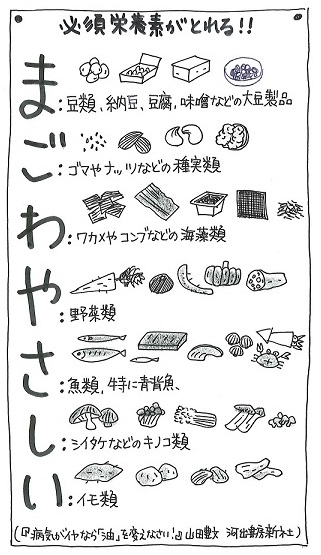 必須栄養素がとれる!!
ま:豆類、納豆、豆腐、味噌などの大豆製品
ご:ゴマやナッツなどの種実類
わ:ワカメやコンブなどの海藻類
や:野菜類
さ:魚類、特に青背魚、
し:シイタケなどのキノコ類
い:イモ類
(『病気がイヤなら「油」を変えなさい!』山田豊文 河出書房新社)